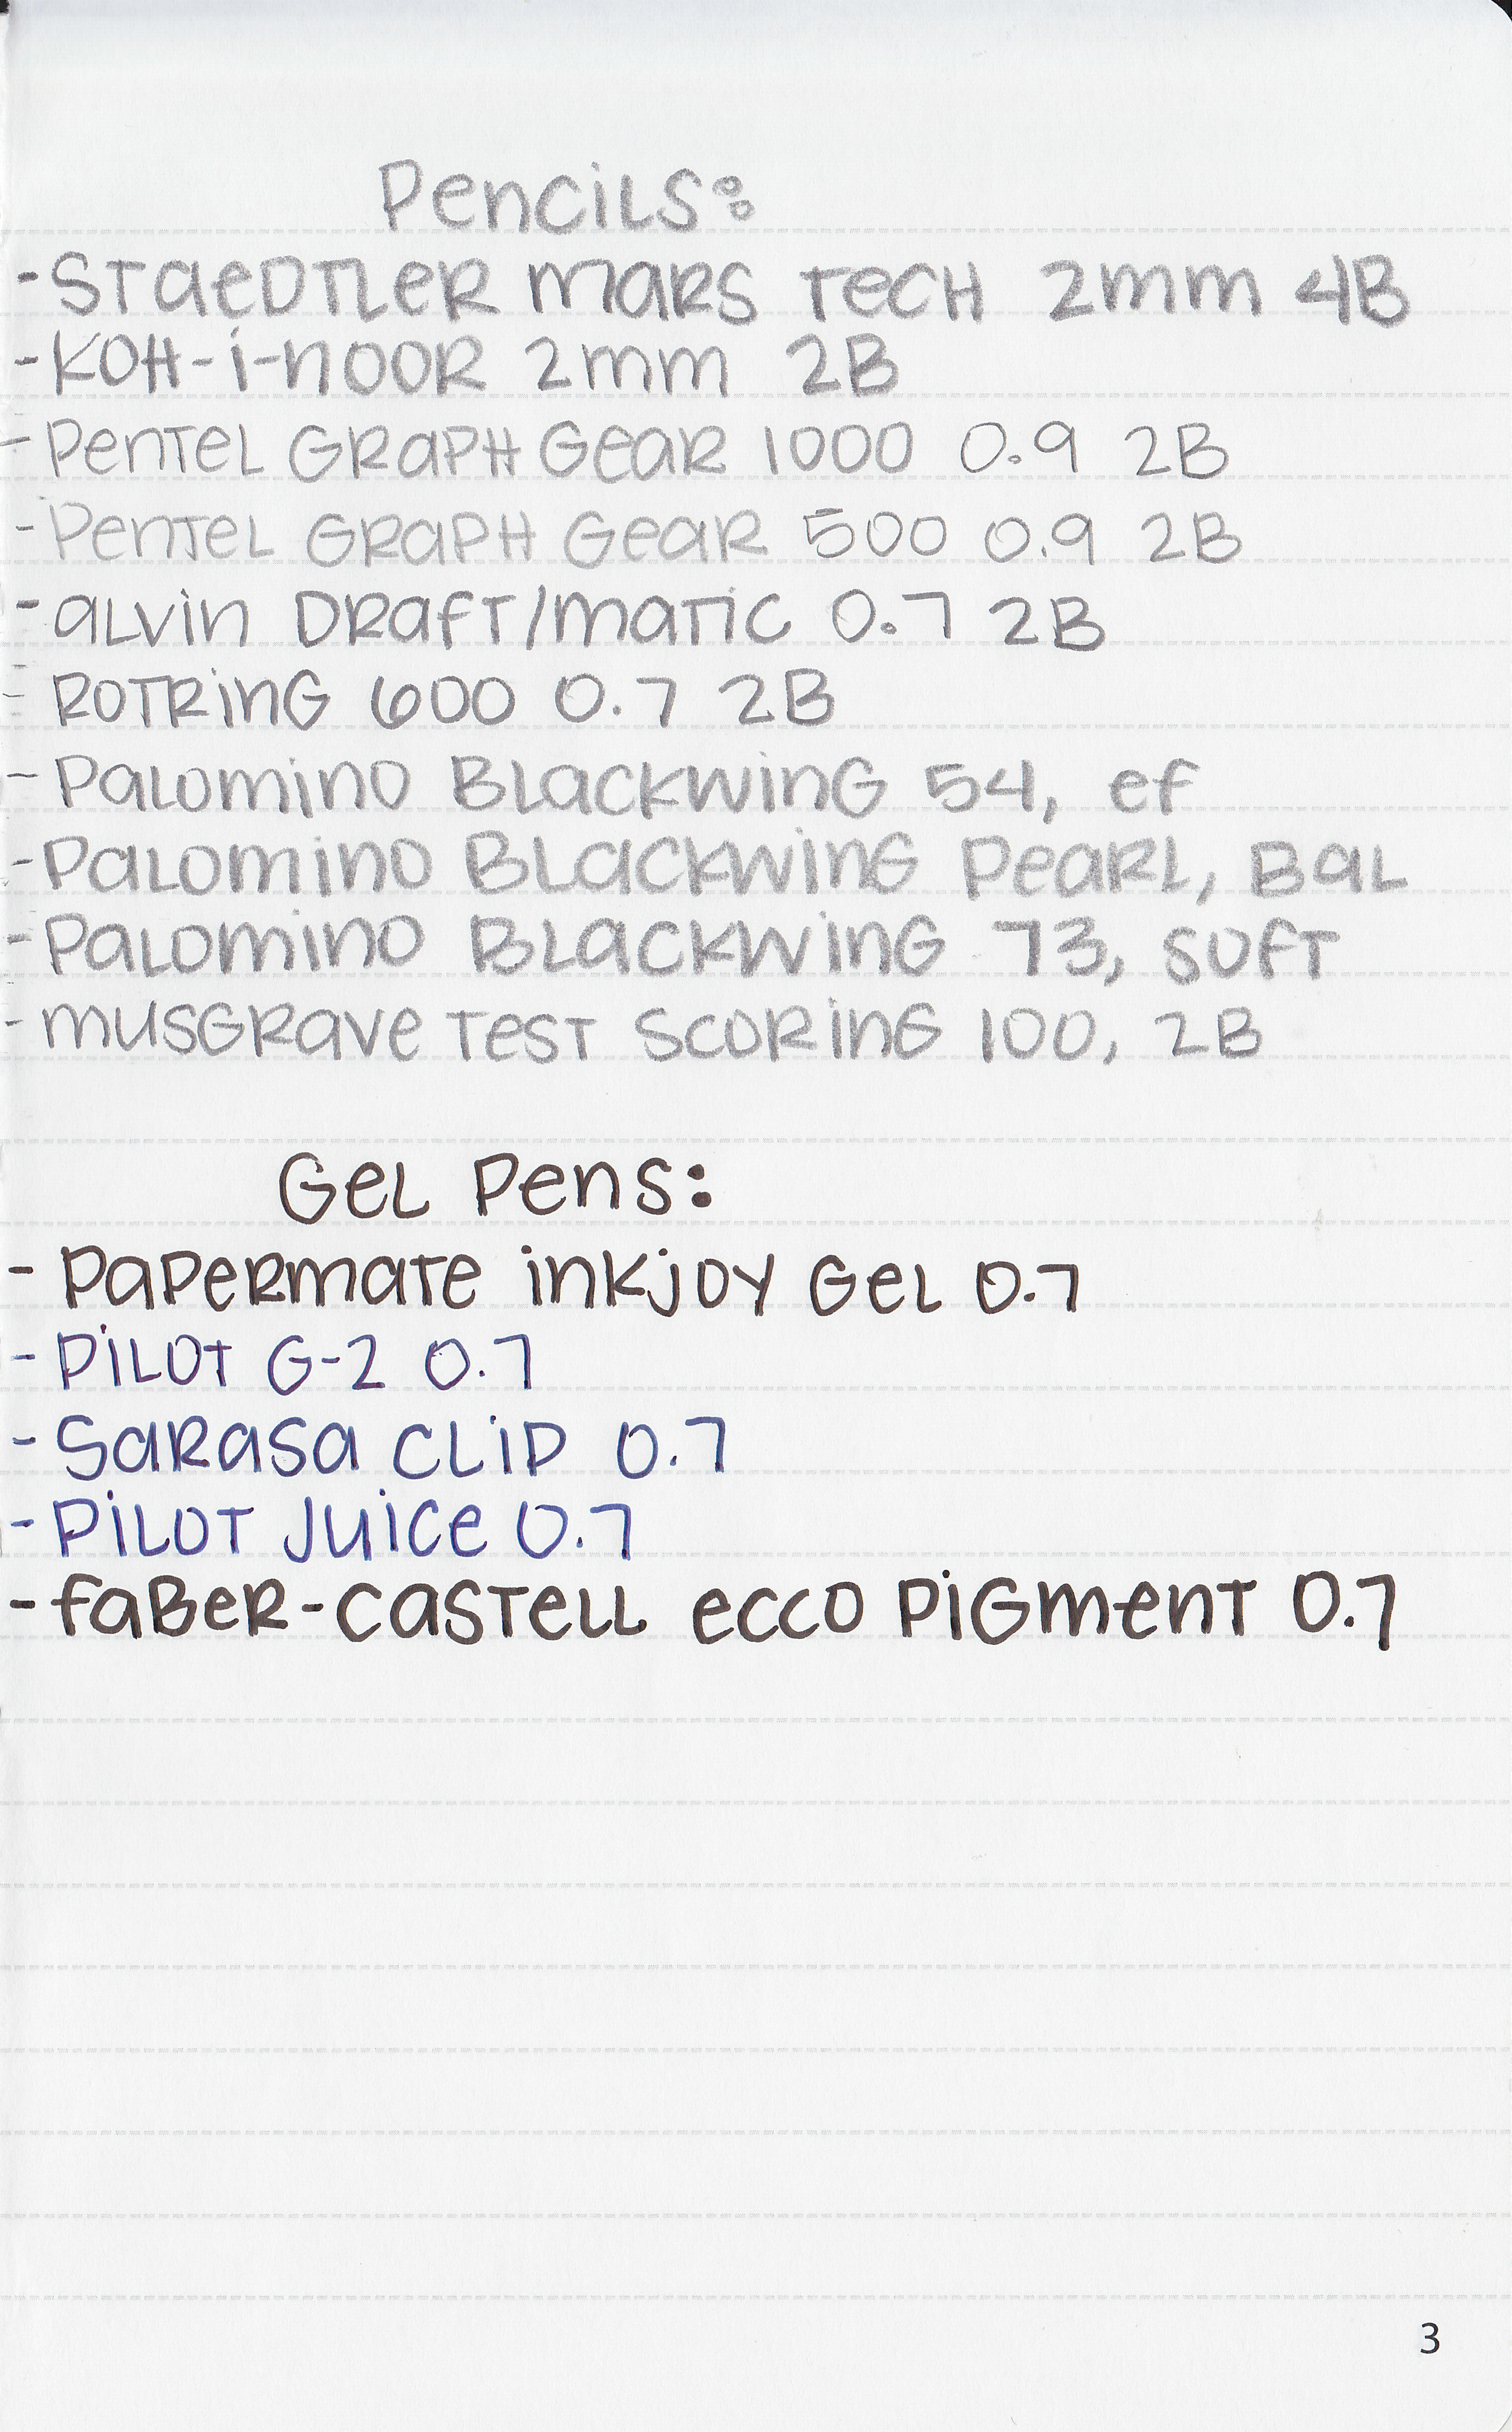 Pencils:
- Staedtler Mars Tech 2mm 4B
- Koh-i-noor 2mm 2B
- Pentel Graph Gear 1000 0.9 2B
- Pentel Graph Gear 500 0.9 2B
- Alvin Draft/Matic 0.7 2B
- Rotring 600 0.7 2B
- Palomino Blackwing 54, ef
- Palomino Blackwing Pearl, Bal
- Palomino Blackwing 73, soft
- Musgrave Test Scoring 100, 2B
Gel Pens:
- Papermate inkjoy Gel 0.7
- Pilot G-2 0.7
- Sarasa Clip 0.7
- Pilot Juice 0.7
- Faber-Castell ecco pigment 0.7
3